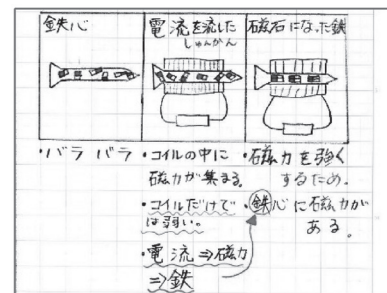 鉄心
電流を流した
しゅんかん
磁石になった鉄
・バラバラ
・コイルの中に
磁力が集まる。
・コイルだけで
は弱い。
・電流⇒磁力
⇒鉄
・磁力を強く
するため。
・鉄心に磁力が
ある。